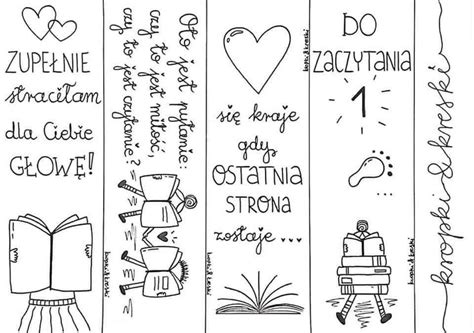 ZUPEŁNIE
straciłam
dla Ciebie
GŁOWĘ!
Oto jest pytanie:
czy to jest miłość,
czy to jest czytanie?
kropki&kreski
kropki&kreski
się kraje
gdy
OSTATNIA
STRONA
zostaje...
kropki&kreski
DO
ZACZYTANIA
1
kropki&kreski
kropki&kreski